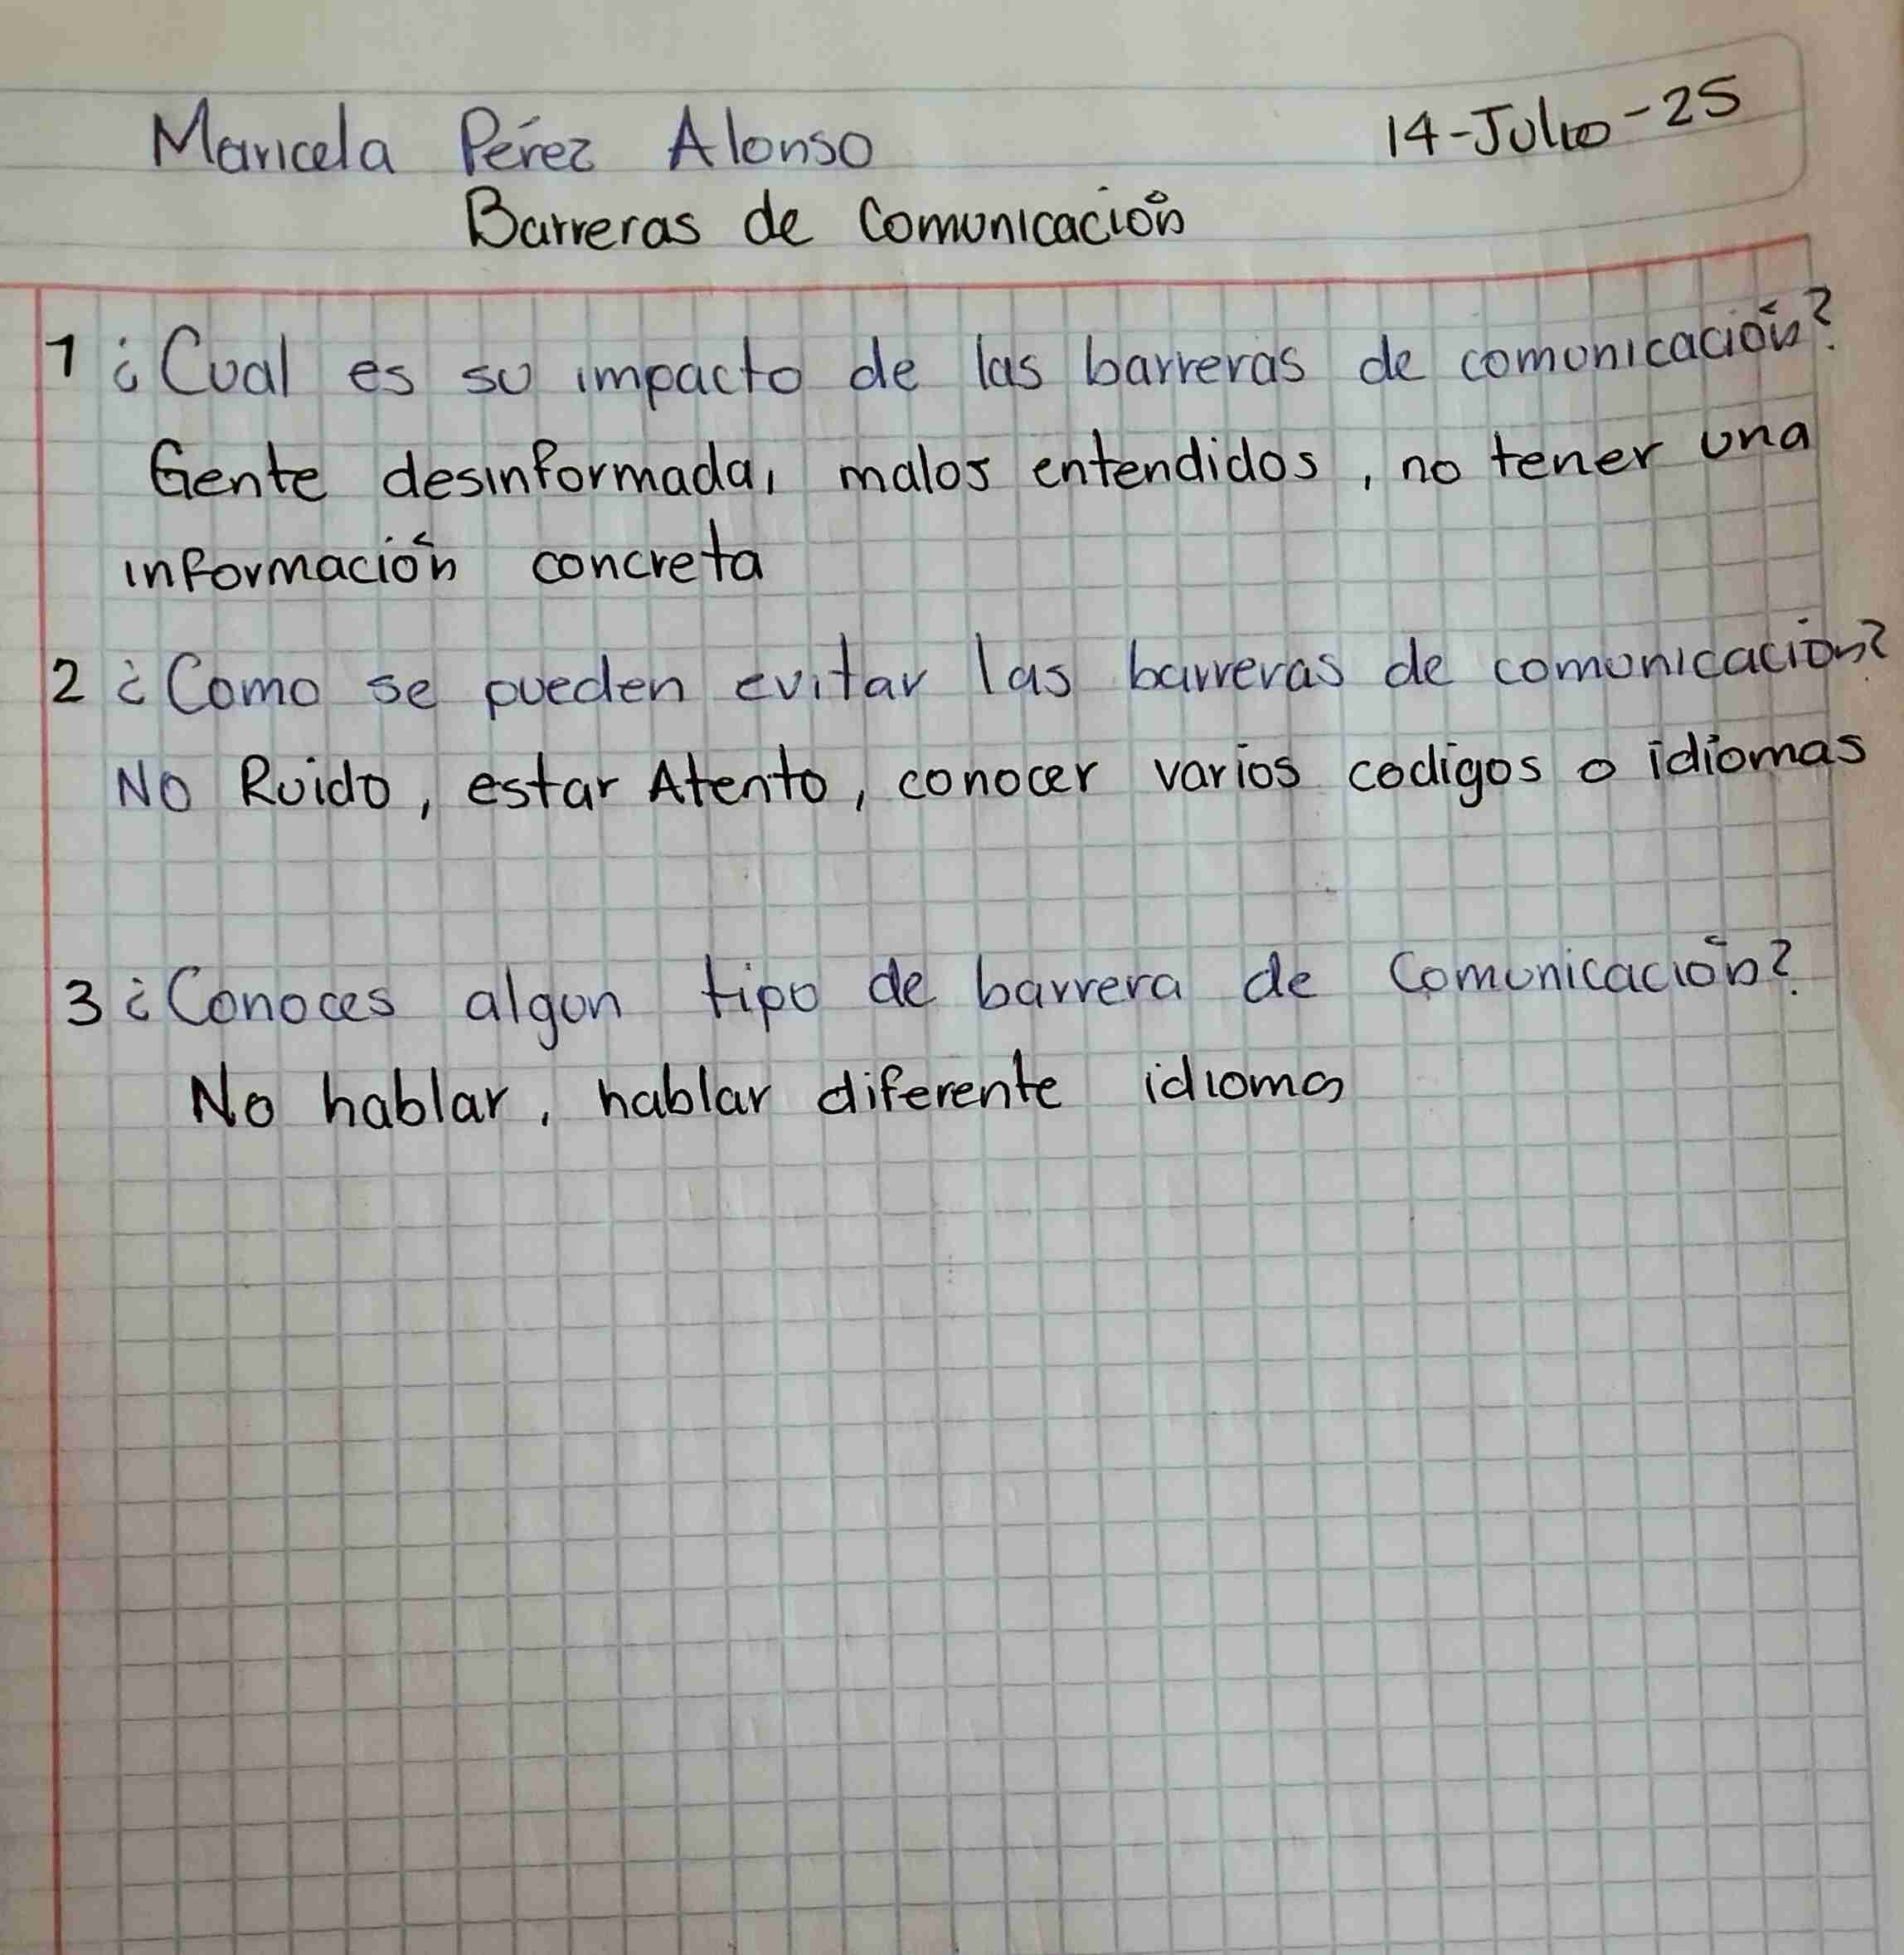 Maricela Pérez Alonso
14-Julio-25
Barreras de Comunicación
1 ¿Cual es su impacto de las barreras de comunicación?
Gente desinformada, malos entendidos, no tener una
información concreta
2 ¿Como se pueden evitar las barreras de comunicación?
No Ruido, estar Atento, conocer varios codigos o idiomas
3 ¿Conoces algun tipo de barrera de Comunicación?
No hablar, hablar diferente idioma